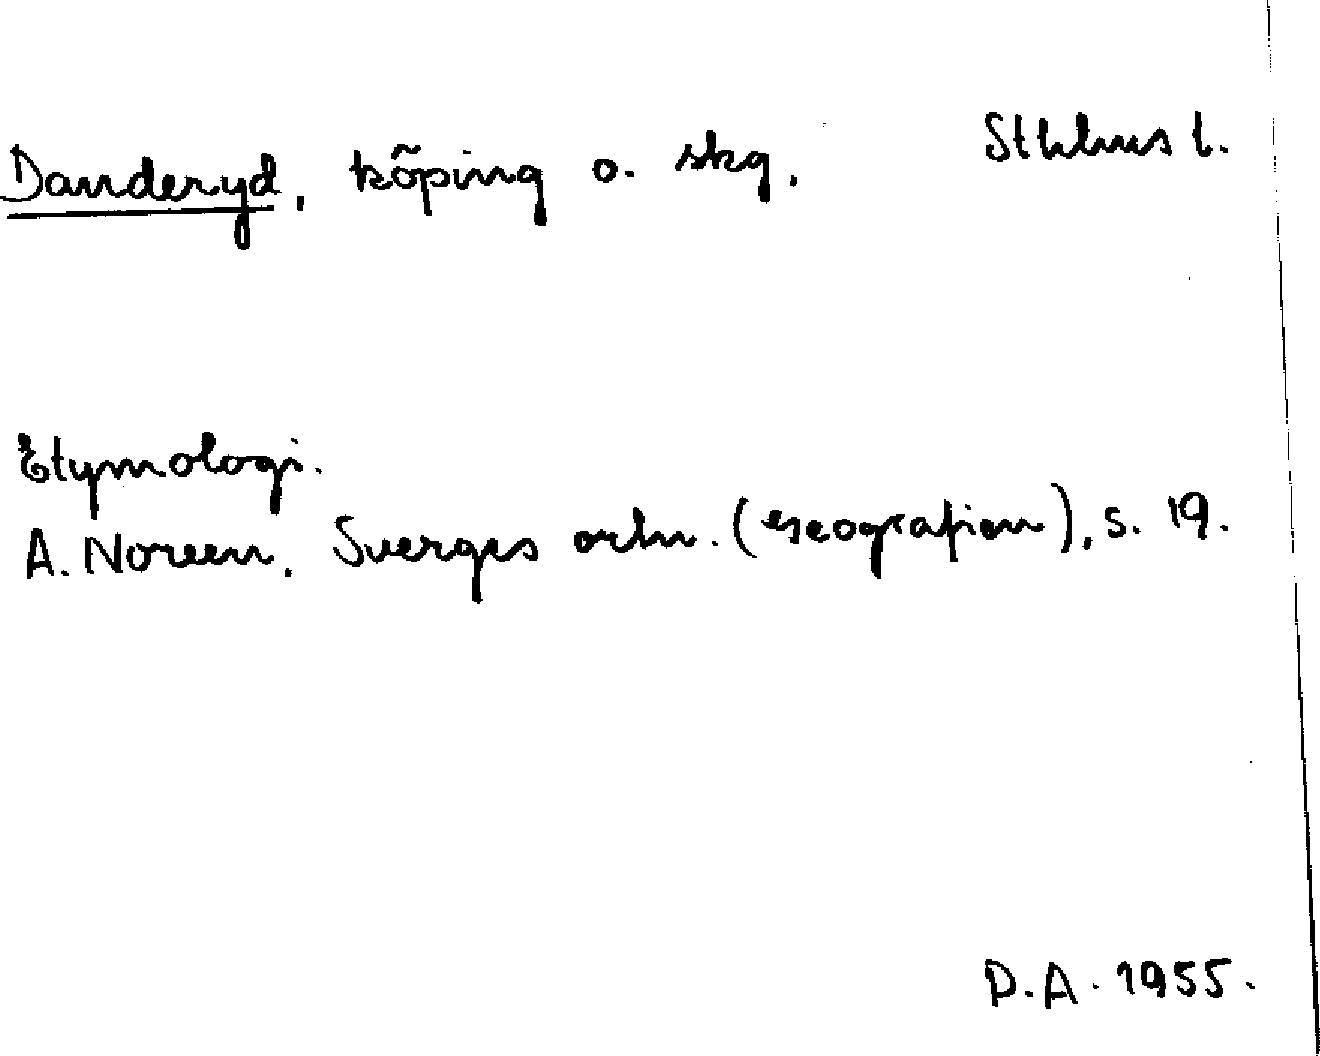 Danderyd, köping o. skg, Sthlms l.
Etymologi.
A. Noreen, Sverges ortn. (xerografien), s. 19.
D.A. 1955.